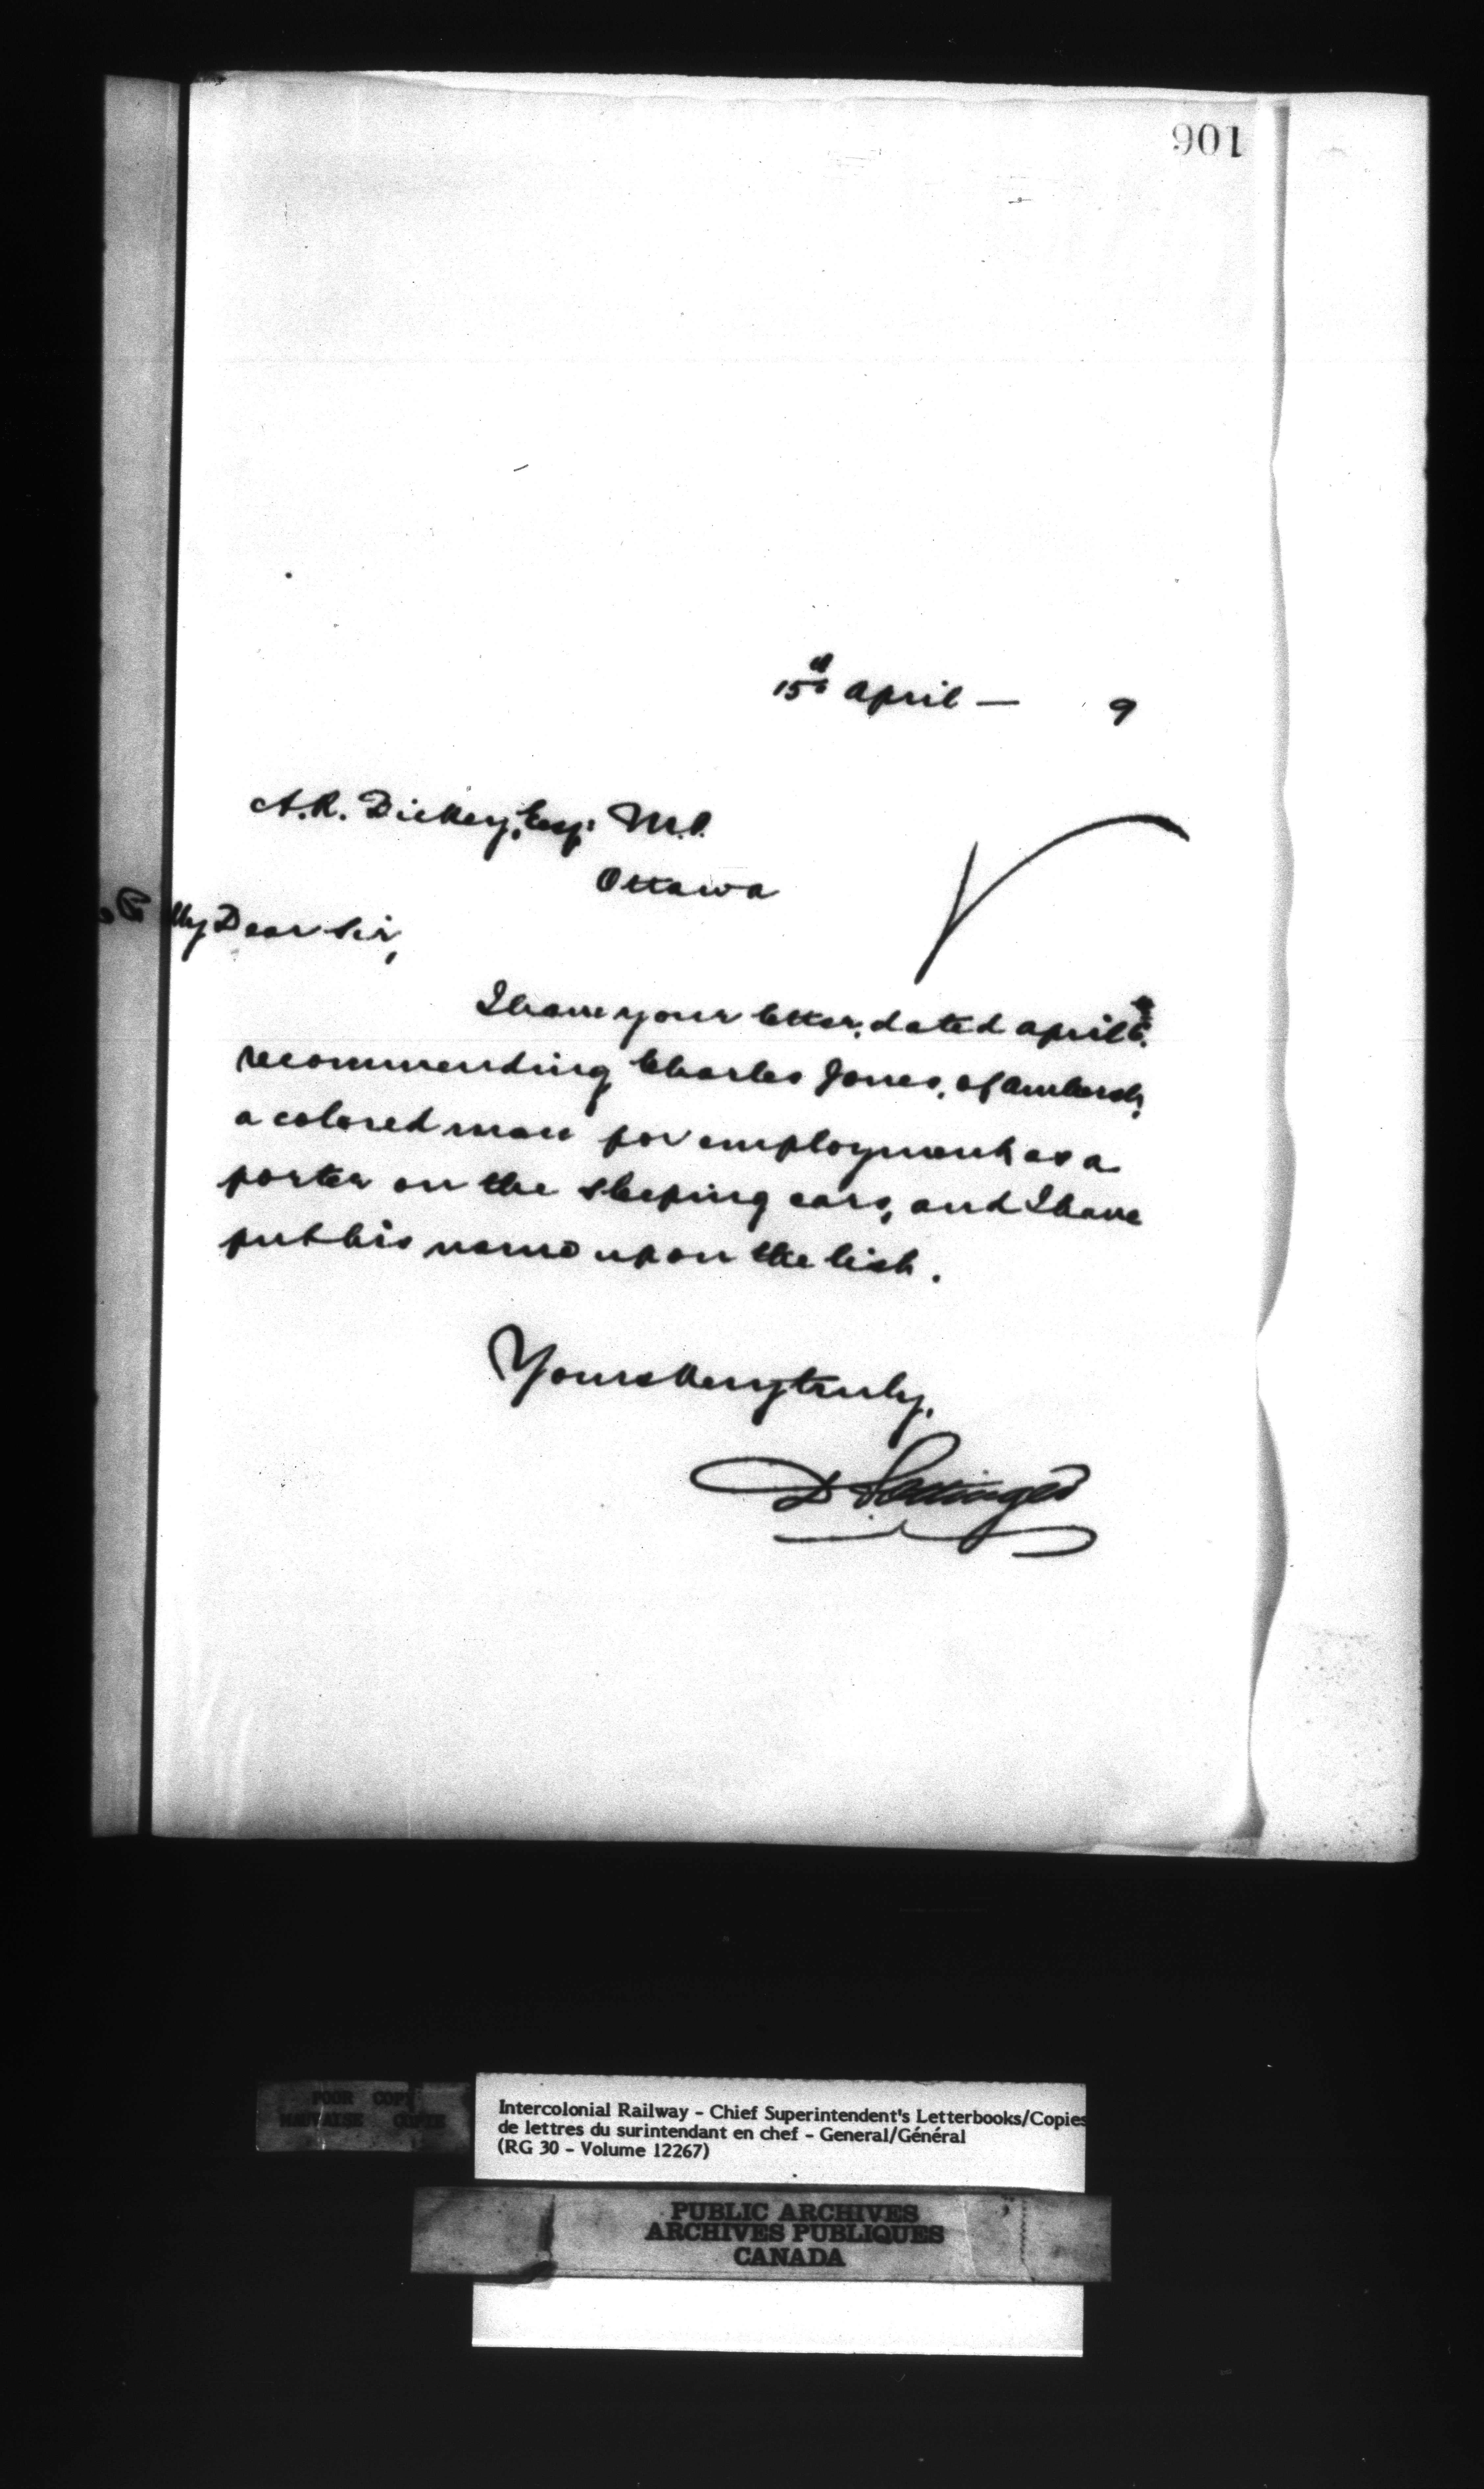 106
15th April — 9
A.R. Dickey, Esq: M.P.
Ottawa
My Dear Sir,
I have your letter, dated April 6th
recommending Charles Jones, of Amherst,
a colored man for employment as a
porter on the sleeping cars, and I have
put his name upon the list.
Yours very truly,
D Pottinger
POOR COPY
MAUVAISE COPIE
Intercolonial Railway - Chief Superintendent's Letterbooks/Copies
de lettres du surintendant en chef - General/Général
(RG 30 - Volume 12267)
PUBLIC ARCHIVES
ARCHIVES PUBLIQUES
CANADA